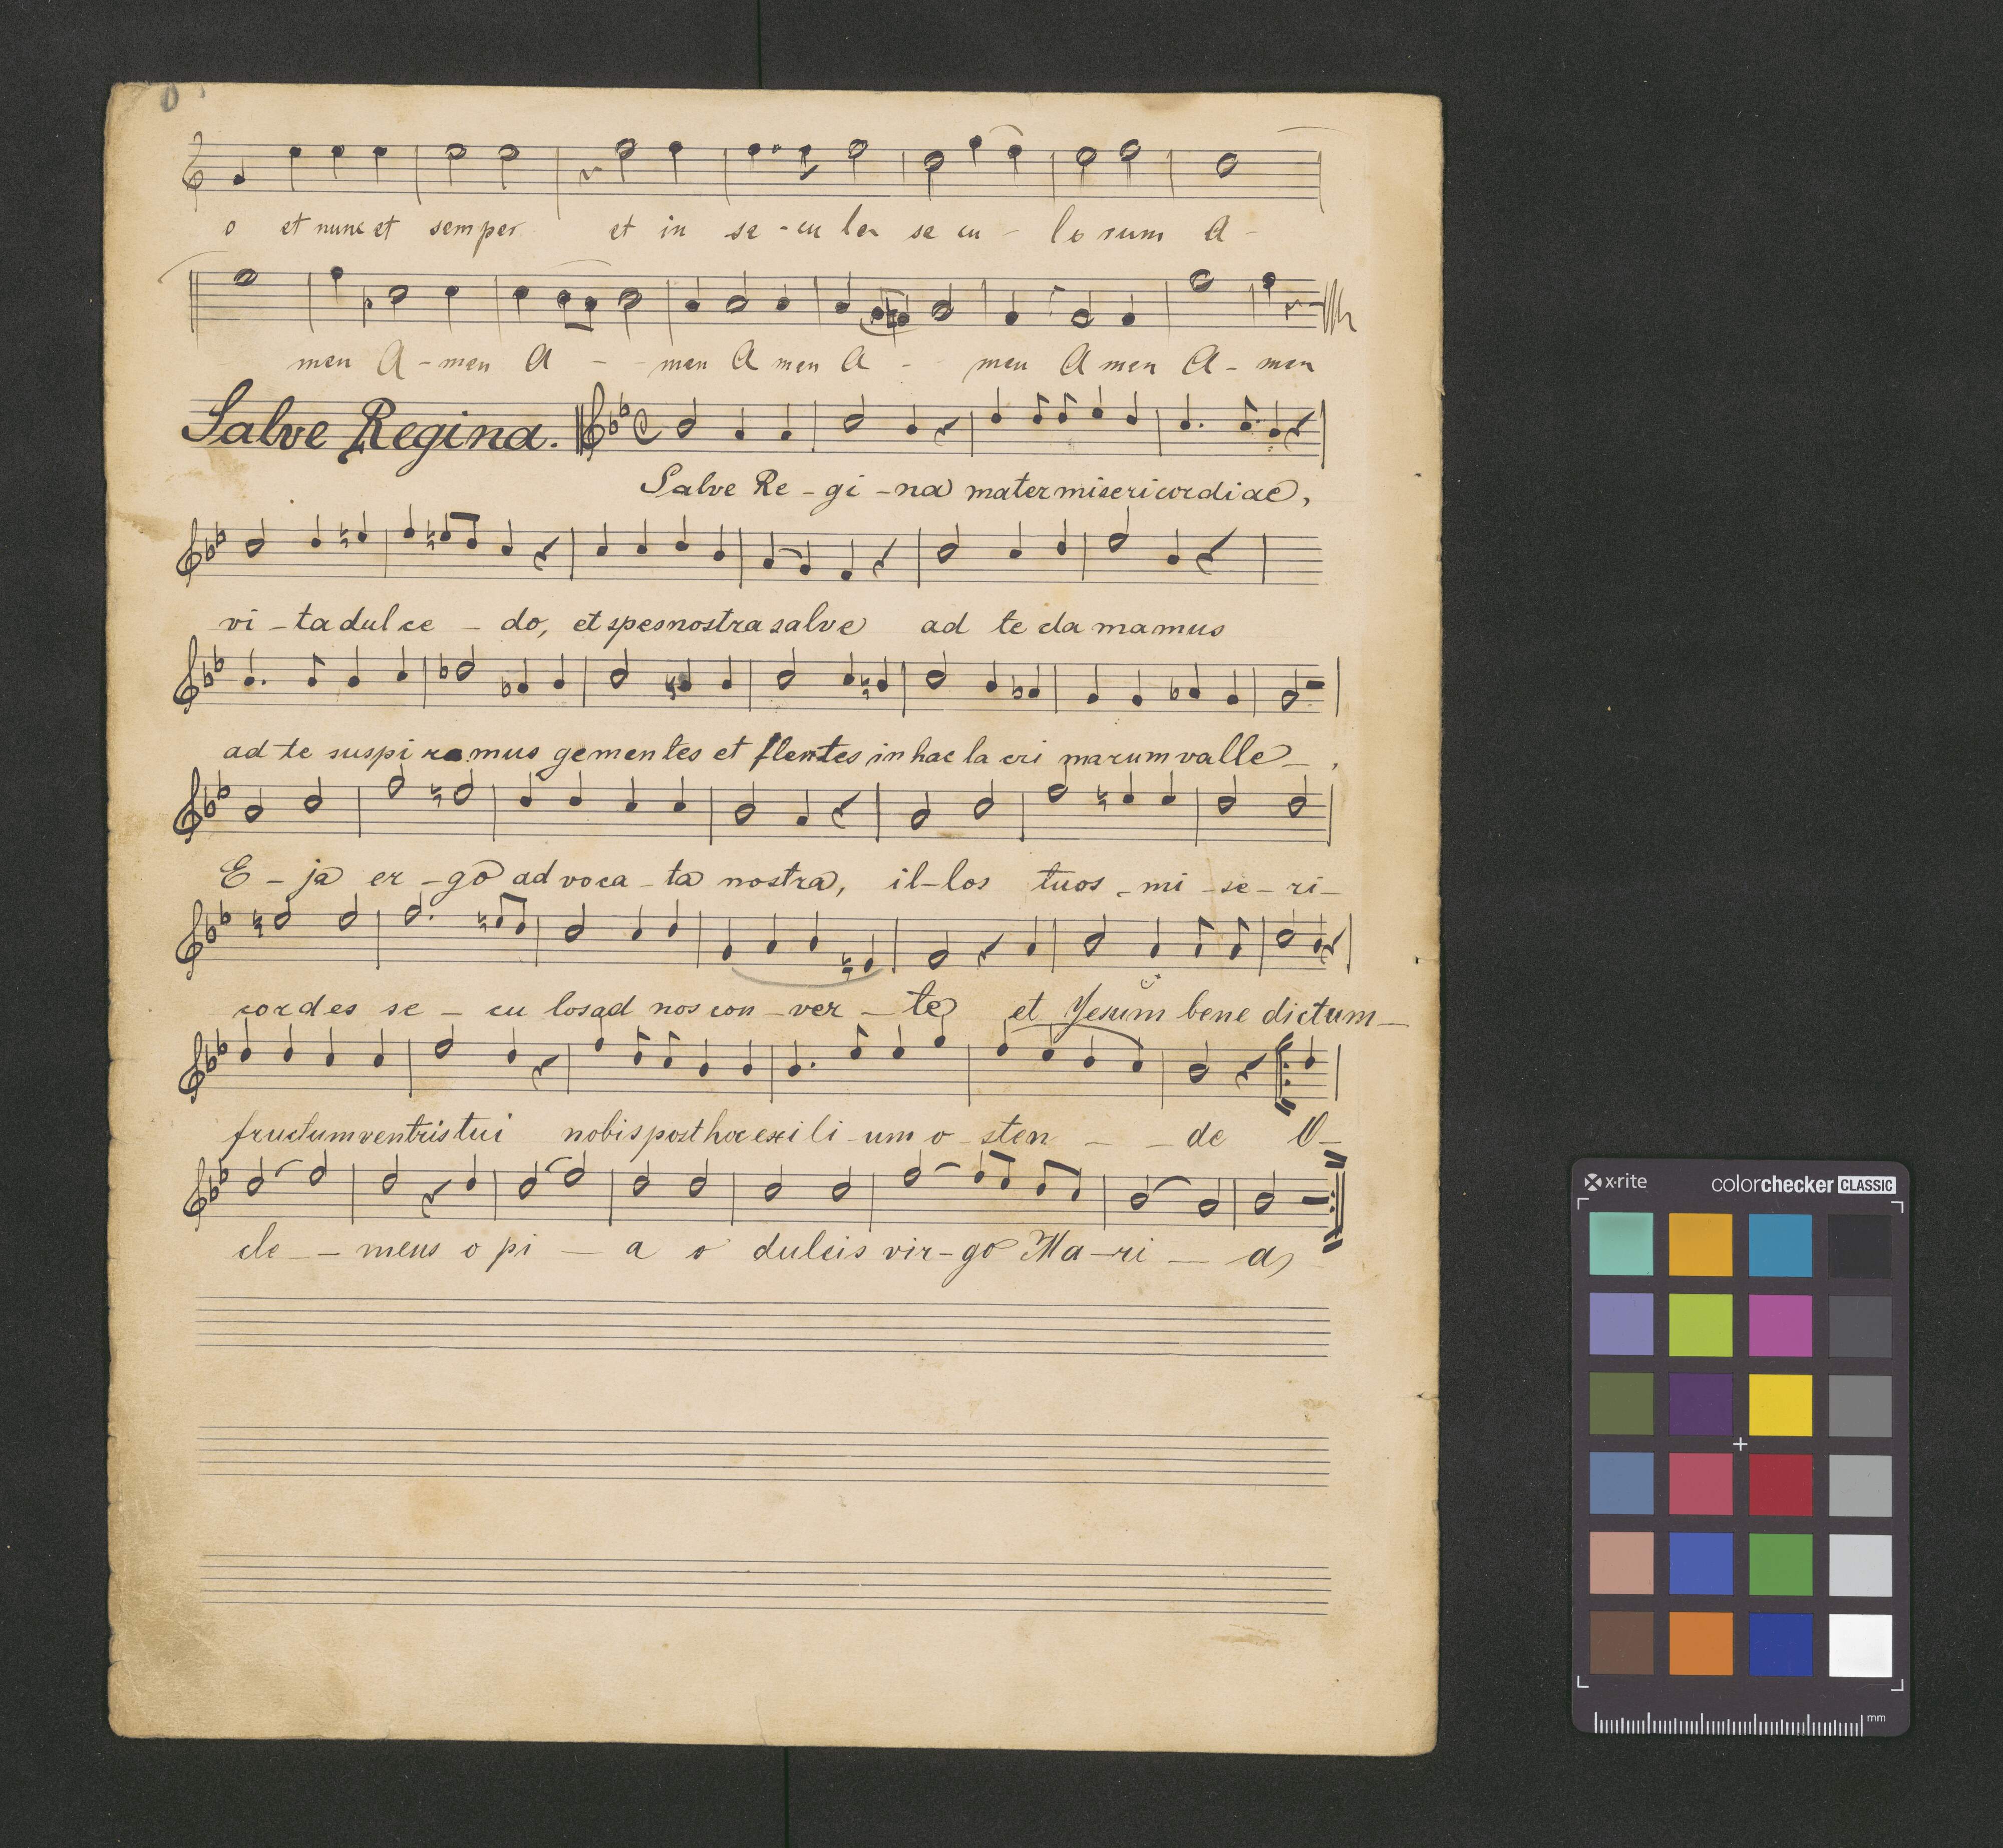 o et nunc et semper et in se - cu la se cu - lo rum A -
men A - men A - - men A men A - men A men A - men
Salve Regina.
Salve Re - gi - na mater misericordiae,
vi - ta dul ce - do, et spes nostra salve ad te cla mamus
ad te suspi ramus gementes et flentes in hac la cri marum valle - .
E - ja er - go ad voca - ta nostra, il - los tuos - mi - se - ri -
cordes se - cu los ad nos con - ver - te et Yesum bene dictum -
fructum ventris tui nobis post hoc exi li - um o - sten - - de O -
cle - - mens o pi - a o dulcis vir - go Ma - ri - a,
x-rite colorchecker CLASSIC
mm